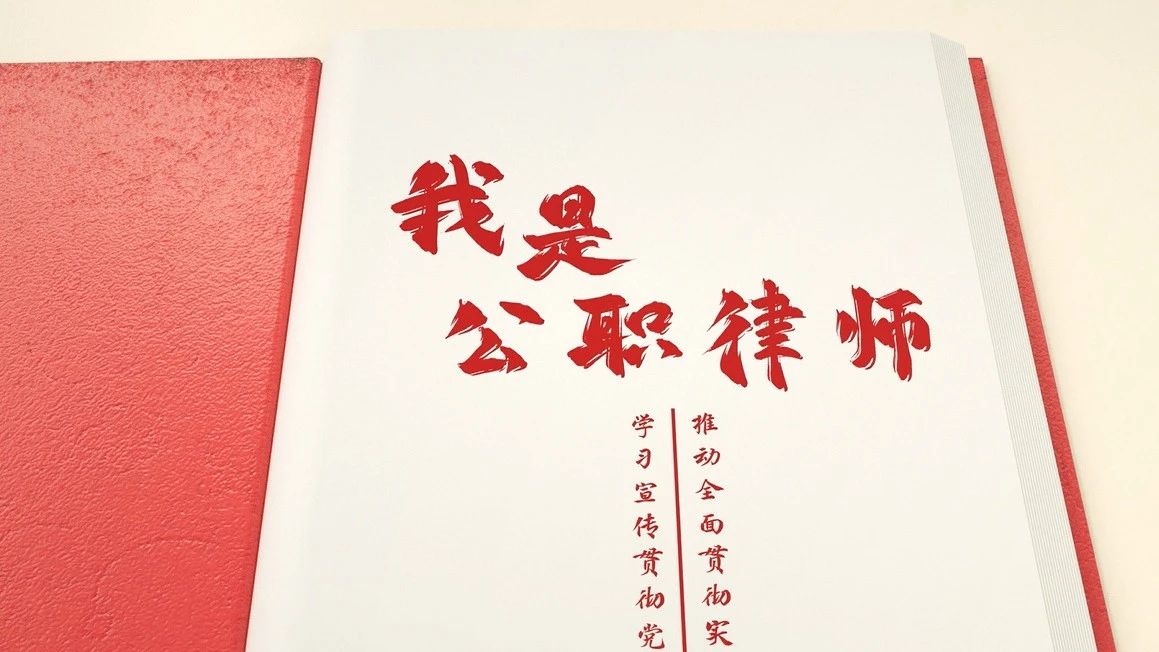 我是
公职律师
学习宣传贯彻党
推动全面贯彻实